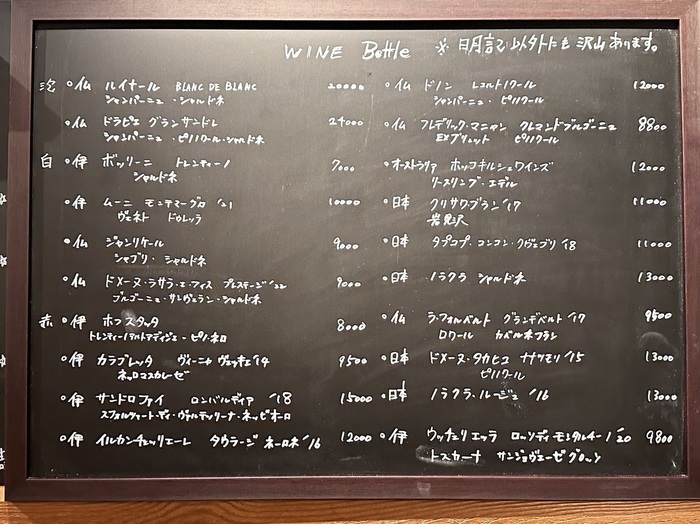 WINE Bottle ※ 明記以外にも沢山あります。
泡 ○仏 ルイナール BLANC DE BLANC 20000
シャンパーニュ・シャルドネ
○仏 ドラピエ グランサンドレ 24000
シャンパーニュ・ピノノワール・シャルドネ
白 ○伊 ボッリーニ トレンティーノ 7000
シャルドネ
○伊 ムーニ モンテマーグロ '21 10000
ヴェネト ドゥレッラ
○仏 ジャンリケール 9000
シャブリ・シャルドネ
○仏 ドメーヌ・ラサラ・エ・フィス プレステージ '22 9000
ブルゴーニュ・サンヴェラン・シャルドネ
赤 ○伊 ホフスタッタ 8000
トレンティーノアルトアディジェ・ピノネロ
○伊 カラブレッタ ヴィーニャ ヴェッキエ '14 9500
ネッロマスカレーゼ
○伊 サンドロファイ ロンバルディア '18 15000
スフォルツァート・ディ・ヴァルテッリーナ・ネッビオーロ
○伊 イルカンチェッリエーレ タウラージ ネーロネ '16 12000
○仏 ドノン レコルトノワール 12000
シャンパーニュ・ピノノワール
○仏 フレデリック・マニャン クレマンドブルゴーニュ 8800
EXブリュット ピノノワール
○オーストラリア ホッコキルシュワインズ 12000
リースリング・エデル
○日本 クリサワブラン '17 11000
岩見沢
○日本 タプコプ・コンコン・クヴェブリ '18 11000
○日本 ノラクラ シャルドネ 13000
○仏 ラ・フォルベルト グランデベルト '17 9500
ロワール カベルネフラン
○日本 ドメーヌ・タカヒコ ナナツモリ '15 13000
ピノノワール
○日本 ノラクラ・ルージュ '16 13000
○伊 ウッチェリエッラ ロッソディモンタルチーノ '20 9800
トスカーナ サンジョヴェーゼグロッソ